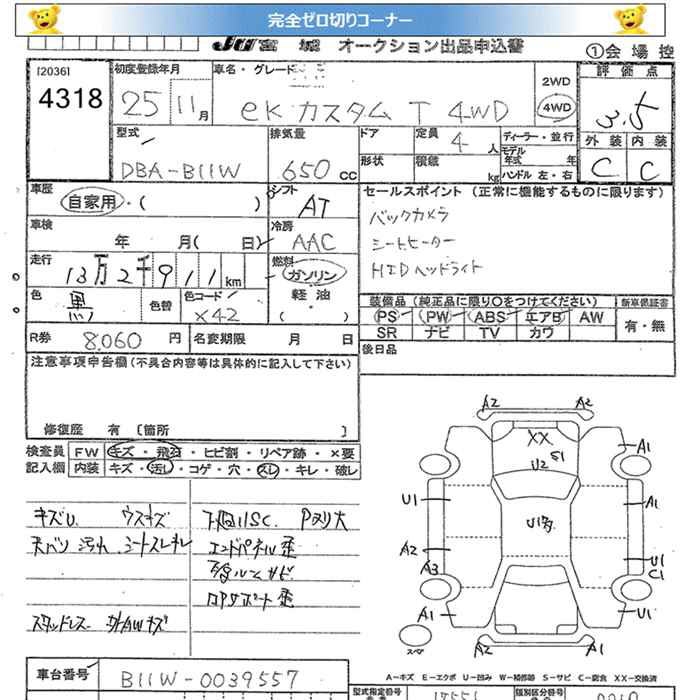 完全ゼロ切りコーナー
JU宮城 オークション出品申込書
①会場控
[2036]
4318
初度登録年月
25 11月
車名・グレード
eKカスタム T 4WD
2WD
4WD
評価点
3.5
型式
DBA-B11W
排気量
650 cc
ドア
形状
定員
4 人
積載
kg
ディーラー・並行
モデル年式 年
ハンドル 左・右
外装 内装
C C
車歴
自家用・( )
シフト
AT
セールスポイント (正常に機能するものに限ります)
バックカメラ
シートヒーター
HIDヘッドライト
車検
年 月( 日)
冷房
AAC
走行
13万2千911km
燃料
ガソリン
軽油
( )
色
黒
色替
色コード
X42
装備品(純正品に限り○をつけてください)
新車保証書
PS PW ABS エアB AW
SR ナビ TV カワ
有・無
R券
8,060 円
名変期限 月 日
後日品
注意事項申告欄(不具合内容等は具体的に記入して下さい)
修復歴 有 [箇所 ]
検査員
記入欄
FW キズ・飛石・ヒビ割・リペア跡・×要
内装 キズ・汚し・コゲ・穴・スレ・キレ・破レ
キズU. ウスキズ
天バリ汚れ シートスレキレ
下廻りSC. Pヌリ大
エンドパネル歪
ロアサポート歪
スタッドレス 外AWキズ
A2 A2
XX
S1
U2
A1
U1
A1
U1多
A2
A3
U1
C1
A1
U1
スペア
A2 A2
A−キズ E−エクボ U−凹み W−補修跡 S−サビ C−腐食 XX−交換済
車台番号
B11W-0039557
型式指定番号
類別区分番号